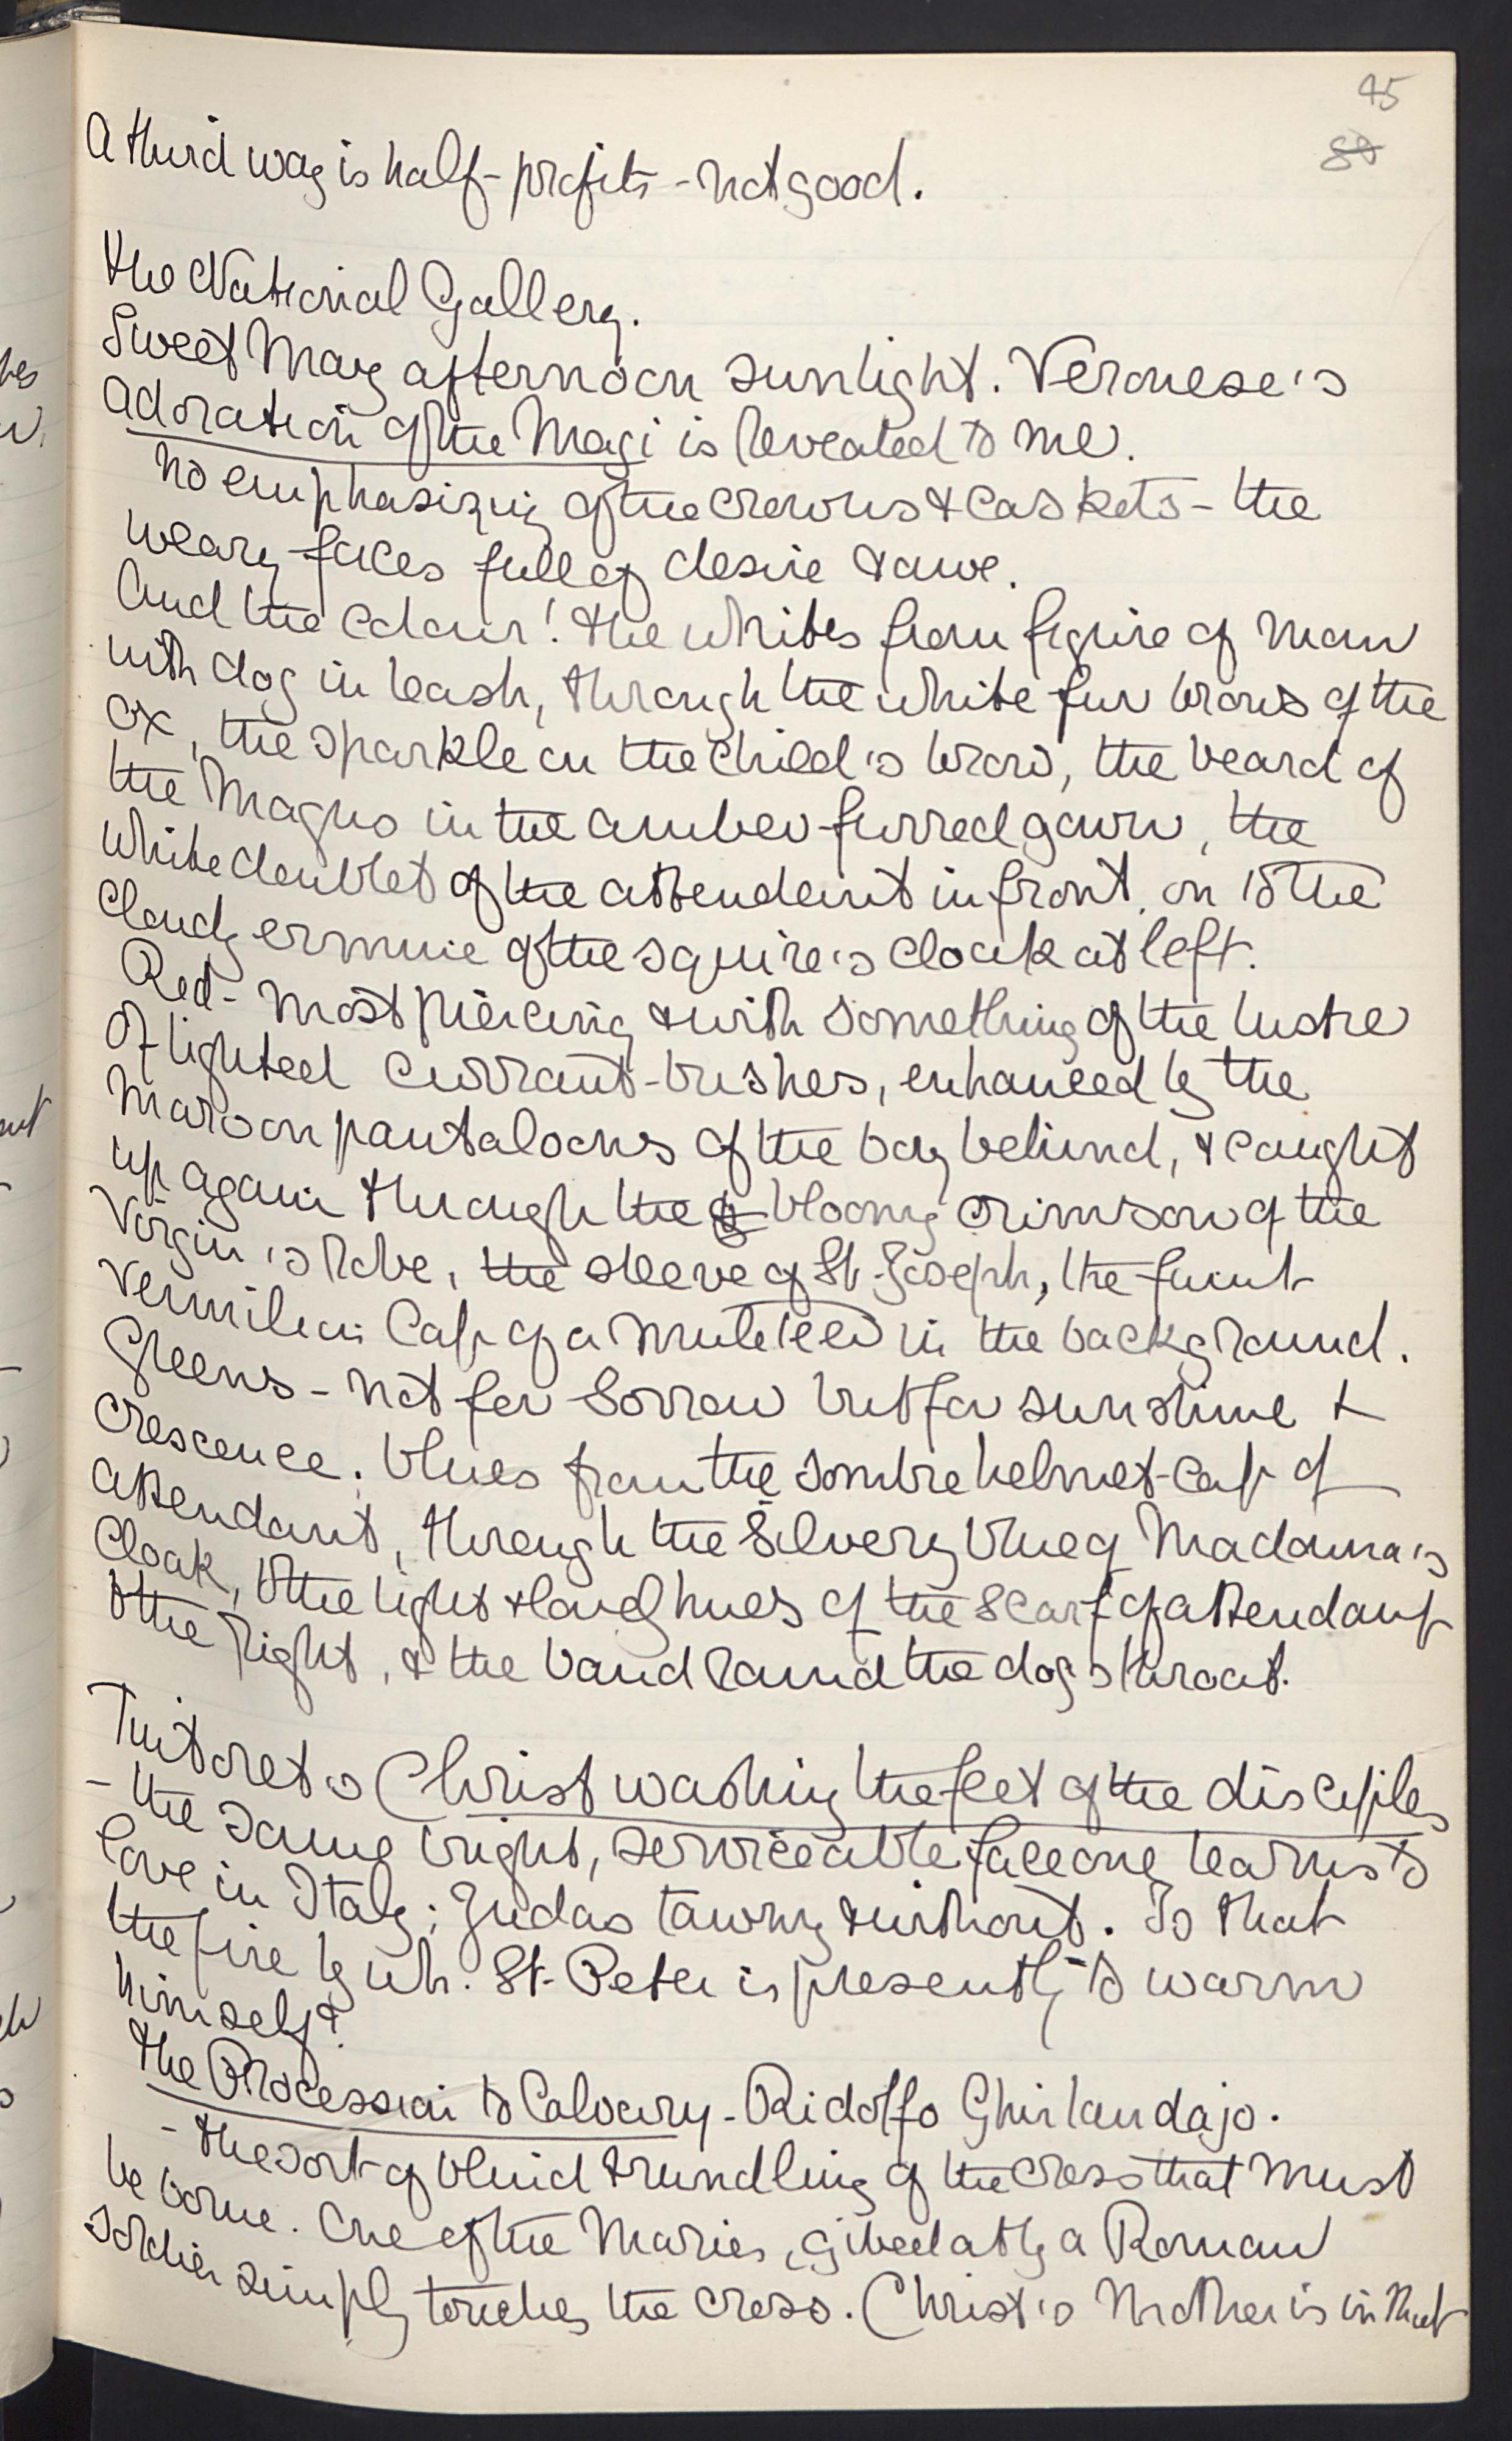 45
88
A third way is half-profits - not good.
The National Gallery.
Sweet May afternoon sunlight. Veronese's
Adoration of the Magi is revealed to me.
No emphasizing of the crowns & caskets - the
weary faces full of desire & awe.
And the colour! The whites from figure of man
with dog in leash, through the white fur brows of the
ox, the sparkle on the Child's brow, the beard of
the Magus in the amber-furred gown, the
white doublet of the attendant in front, on to the
cloudy ermine of the squire's cloak at left.
Red - most piercing & with something of the lustre
of lighted currant-bushes, enhanced by the
maroon pantaloons of the boy behind, & caught
up again through the bloomy crimson of the
Virgin's robe, the sleeve of St. Joseph, the faint
vermilion cap of a muleteer in the background.
Greens - not for sorrow but for sunshine &
crescence. Blues from the sombre helmet-cap of
attendant, through the silvery blue of Madonna's
cloak, to the light & loud hues of the scarf of attendant
to the right, & the band round the dog's throat.
Tintoret's Christ washing the feet of the disciples
- the same bright, serviceable face one learns to
love in Italy; Judas tawny & without. Is that
the fire by wh. St. Peter is presently to warm
himself?
The Procession to Calvary - Ridolfo Ghirlandajo.
- the sort of blind trundling of the cross that must
be borne. One of the Maries, gibed at by a Roman
soldier simply touches the cross. Christ's Mother is in that